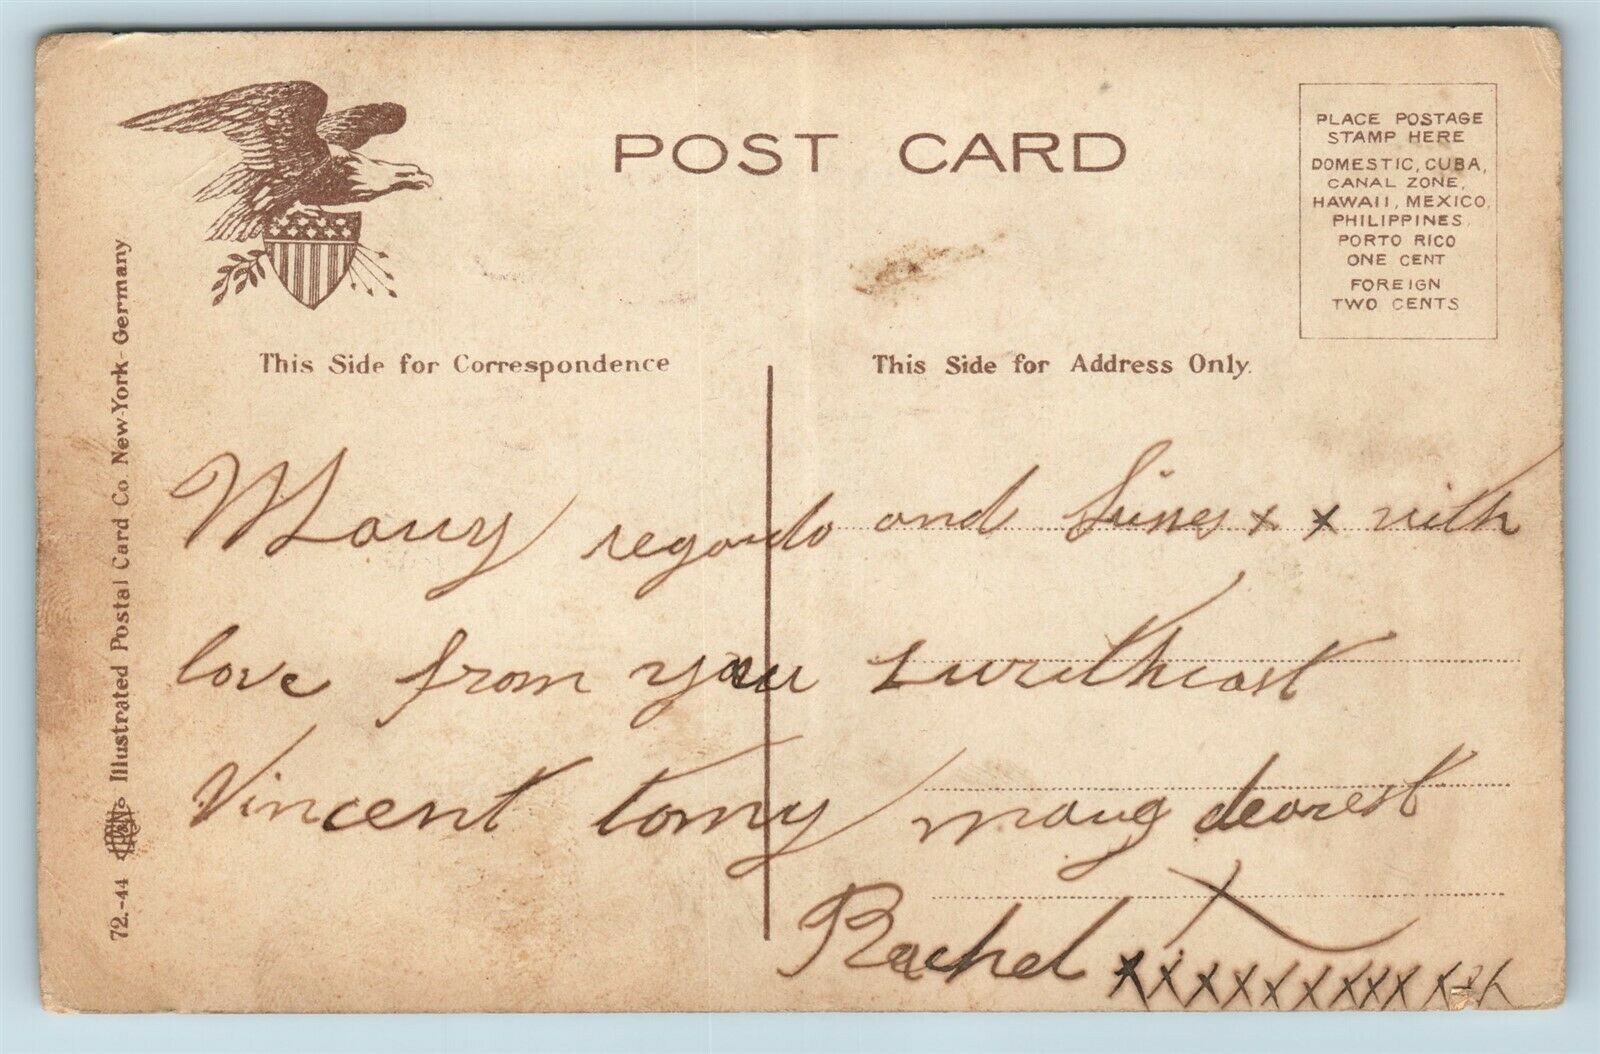 POST CARD
PLACE POSTAGE
STAMP HERE
DOMESTIC, CUBA,
CANAL ZONE,
HAWAII, MEXICO,
PHILIPPINES,
PORTO RICO
ONE CENT
FOREIGN
TWO CENTS
This Side for Correspondence
This Side for Address Only.
72.-44 Illustrated Postal Card Co. New-York - Germany
Many regards and x x with
love from your sweetheart
Vincent tomy dearest
Rachel xxxxxxxxx